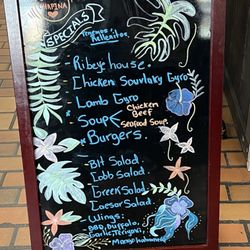 HARINA
SPECIALS
Tenemos
Rellenitos.
- Ribeye house.
- Chicken Souvlaky Gyro
- Lamb Gyro
- Soups Chicken
Beef
Seafood Soup
- Burgers
- Blt Salad
- Cobb Salad
- Greek Salad
- Caesar Salad
- Wings:
BBQ, Buffalo,
Garlic, Teriyaki,
Mango habanero